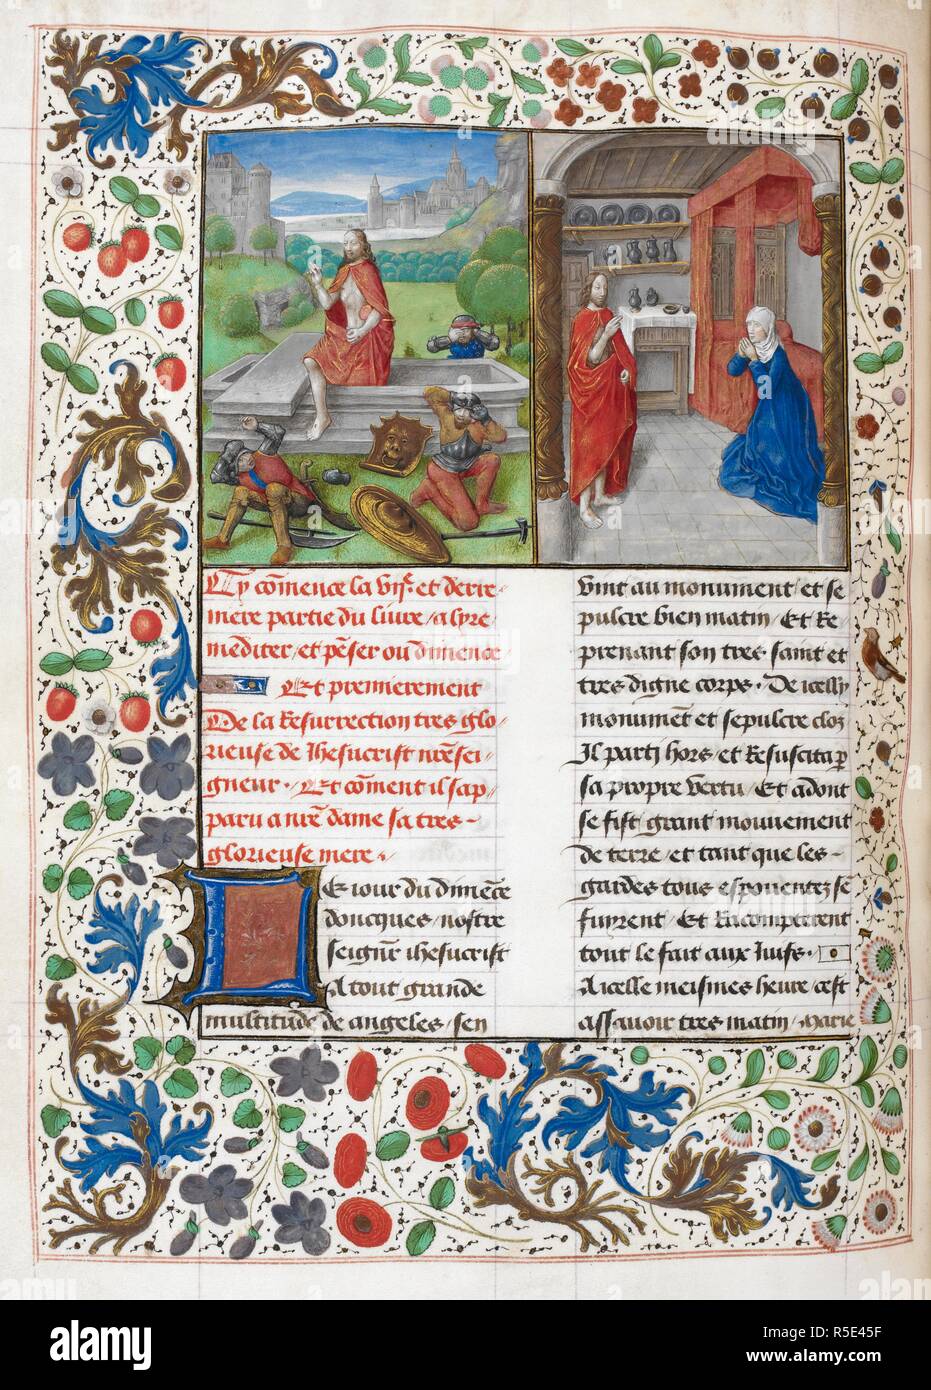 Cy cōmence la viſ.e et derre⸗
niere partie du liure / a lyre
mediter / et pēser ou dimence
Et premierement
De la Resurrection tres glo⸗
rieuse de Ihesucrist nr̄e sei⸗
gneur . Et cōment il sap⸗
paru a nr̄e dame sa tres⸗
glorieuse mere .
LE iour du dimēce
doncques / nostre
seignr̄ ihesucrist
A tout grande
multitude de angeles / sen
vint au monument / et se
pulcre bien matin / Et Re
prenant son tres saint et
tres digne corps . De icelly
monumēt et sepulcre cloz
Il parti hors / et Resuscita p̄
sa propre vertu / Et adont
se fist grant mouuement
de terre / et tant que les⸗
gardes tous espouentez se
fuyrent / Et Racompterent
tout le fait aux Iuifs .
A icelle meismes heure / cest
assauoir tres matin / Marie
alamy
Image ID: R5E45F
www.alamy.com